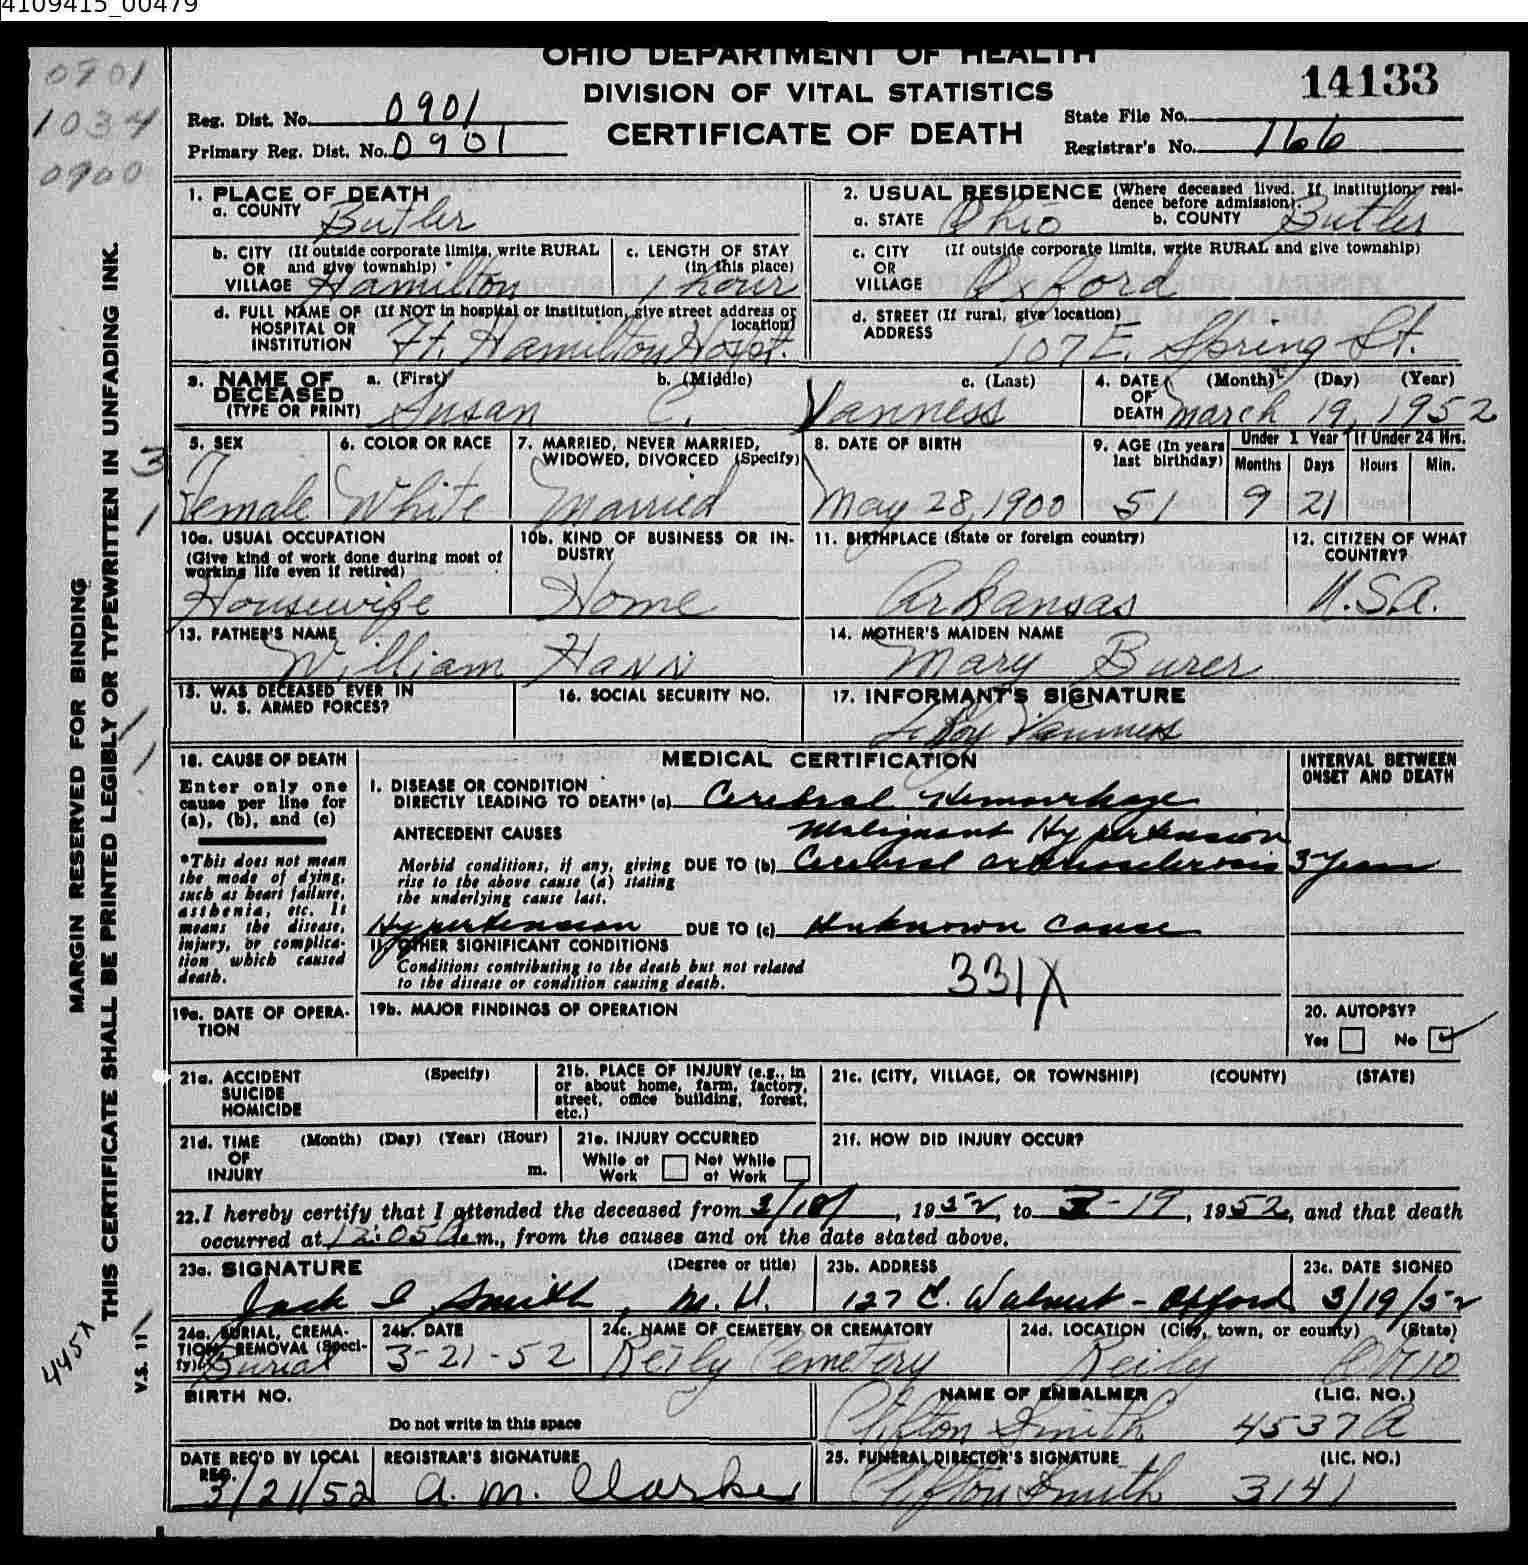 4109415_00479
OHIO DEPARTMENT OF HEALTH
DIVISION OF VITAL STATISTICS
CERTIFICATE OF DEATH
14133
0901
1034
0900
Reg. Dist. No. 0901
Primary Reg. Dist. No. 0901
State File No.
Registrar's No. 166
1. PLACE OF DEATH
a. COUNTY Butler
2. USUAL RESIDENCE (Where deceased lived. If institution: residence before admission).
a. STATE Ohio b. COUNTY Butler
b. CITY (If outside corporate limits, write RURAL
OR and give township)
VILLAGE Hamilton
c. LENGTH OF STAY
(in this place)
1 hour
c. CITY (If outside corporate limits, write RURAL and give township)
OR
VILLAGE Oxford
d. FULL NAME OF (If NOT in hospital or institution, give street address or location)
HOSPITAL OR
INSTITUTION Ft. Hamilton Hospt.
d. STREET (If rural, give location)
ADDRESS 107 E. Spring St.
3. NAME OF DECEASED
(TYPE OR PRINT)
a. (First) b. (Middle) c. (Last)
Susan C. Vanness
4. DATE OF DEATH (Month) (Day) (Year)
March 19, 1952
5. SEX
Female
6. COLOR OR RACE
White
7. MARRIED, NEVER MARRIED,
WIDOWED, DIVORCED (Specify)
Married
8. DATE OF BIRTH
May 28, 1900
9. AGE (In years last birthday)
51
Under 1 Year
Months Days
9 21
If Under 24 Hrs.
Hours Min.
10a. USUAL OCCUPATION
(Give kind of work done during most of working life even if retired)
Housewife
10b. KIND OF BUSINESS OR INDUSTRY
Home
11. BIRTHPLACE (State or foreign country)
Arkansas
12. CITIZEN OF WHAT COUNTRY?
U.S.A.
13. FATHER'S NAME
William Hann
14. MOTHER'S MAIDEN NAME
Mary Burer
15. WAS DECEASED EVER IN U. S. ARMED FORCES?
16. SOCIAL SECURITY NO.
17. INFORMANT'S SIGNATURE
LeRoy Vanness
18. CAUSE OF DEATH
Enter only one cause per line for (a), (b), and (c)
*This does not mean the mode of dying, such as heart failure, asthenia, etc. It means the disease, injury, or complication which caused death.
MEDICAL CERTIFICATION
INTERVAL BETWEEN ONSET AND DEATH
I. DISEASE OR CONDITION
DIRECTLY LEADING TO DEATH* (a) Cerebral Hemorrhage
ANTECEDENT CAUSES Malignant Hypertension
Morbid conditions, if any, giving rise to the above cause (a) stating the underlying cause last.
DUE TO (b) Cerebral arteriosclerosis 3 years
Hypertension DUE TO (c) Unknown Cause
II. OTHER SIGNIFICANT CONDITIONS
Conditions contributing to the death but not related to the disease or condition causing death.
331X
19a. DATE OF OPERATION
19b. MAJOR FINDINGS OF OPERATION
20. AUTOPSY?
Yes No
21a. ACCIDENT
SUICIDE
HOMICIDE
(Specify)
21b. PLACE OF INJURY (e.g., in or about home, farm, factory, street, office building, forest, etc.)
21c. (CITY, VILLAGE, OR TOWNSHIP) (COUNTY) (STATE)
21d. TIME OF INJURY (Month) (Day) (Year) (Hour)
m.
21e. INJURY OCCURRED
While at Work Not While at Work
21f. HOW DID INJURY OCCUR?
22. I hereby certify that I attended the deceased from 3/18/, 1952, to 3-19, 1952, and that death
occurred at 12:05 a.m., from the causes and on the date stated above.
23a. SIGNATURE (Degree or title)
Jack I Smith, M.D.
23b. ADDRESS
127 E. Walnut - Oxford
23c. DATE SIGNED
3/19/52
24a. BURIAL, CREMATION, REMOVAL (Specify)
Burial
24b. DATE
3-21-52
24c. NAME OF CEMETERY OR CREMATORY
Reily Cemetery
24d. LOCATION (City, town, or county) (State)
Reily Ohio
BIRTH NO.
Do not write in this space
NAME OF EMBALMER (LIC. NO.)
Clifton Smith 4537A
DATE REC'D BY LOCAL REG.
3/21/52
REGISTRAR'S SIGNATURE
A. M. Clarke
25. FUNERAL DIRECTOR'S SIGNATURE (LIC. NO.)
Clifton Smith 3141
MARGIN RESERVED FOR BINDING
THIS CERTIFICATE SHALL BE PRINTED LEGIBLY OR TYPEWRITTEN IN UNFADING INK.
3
1
1
1
445X
V.S. 11